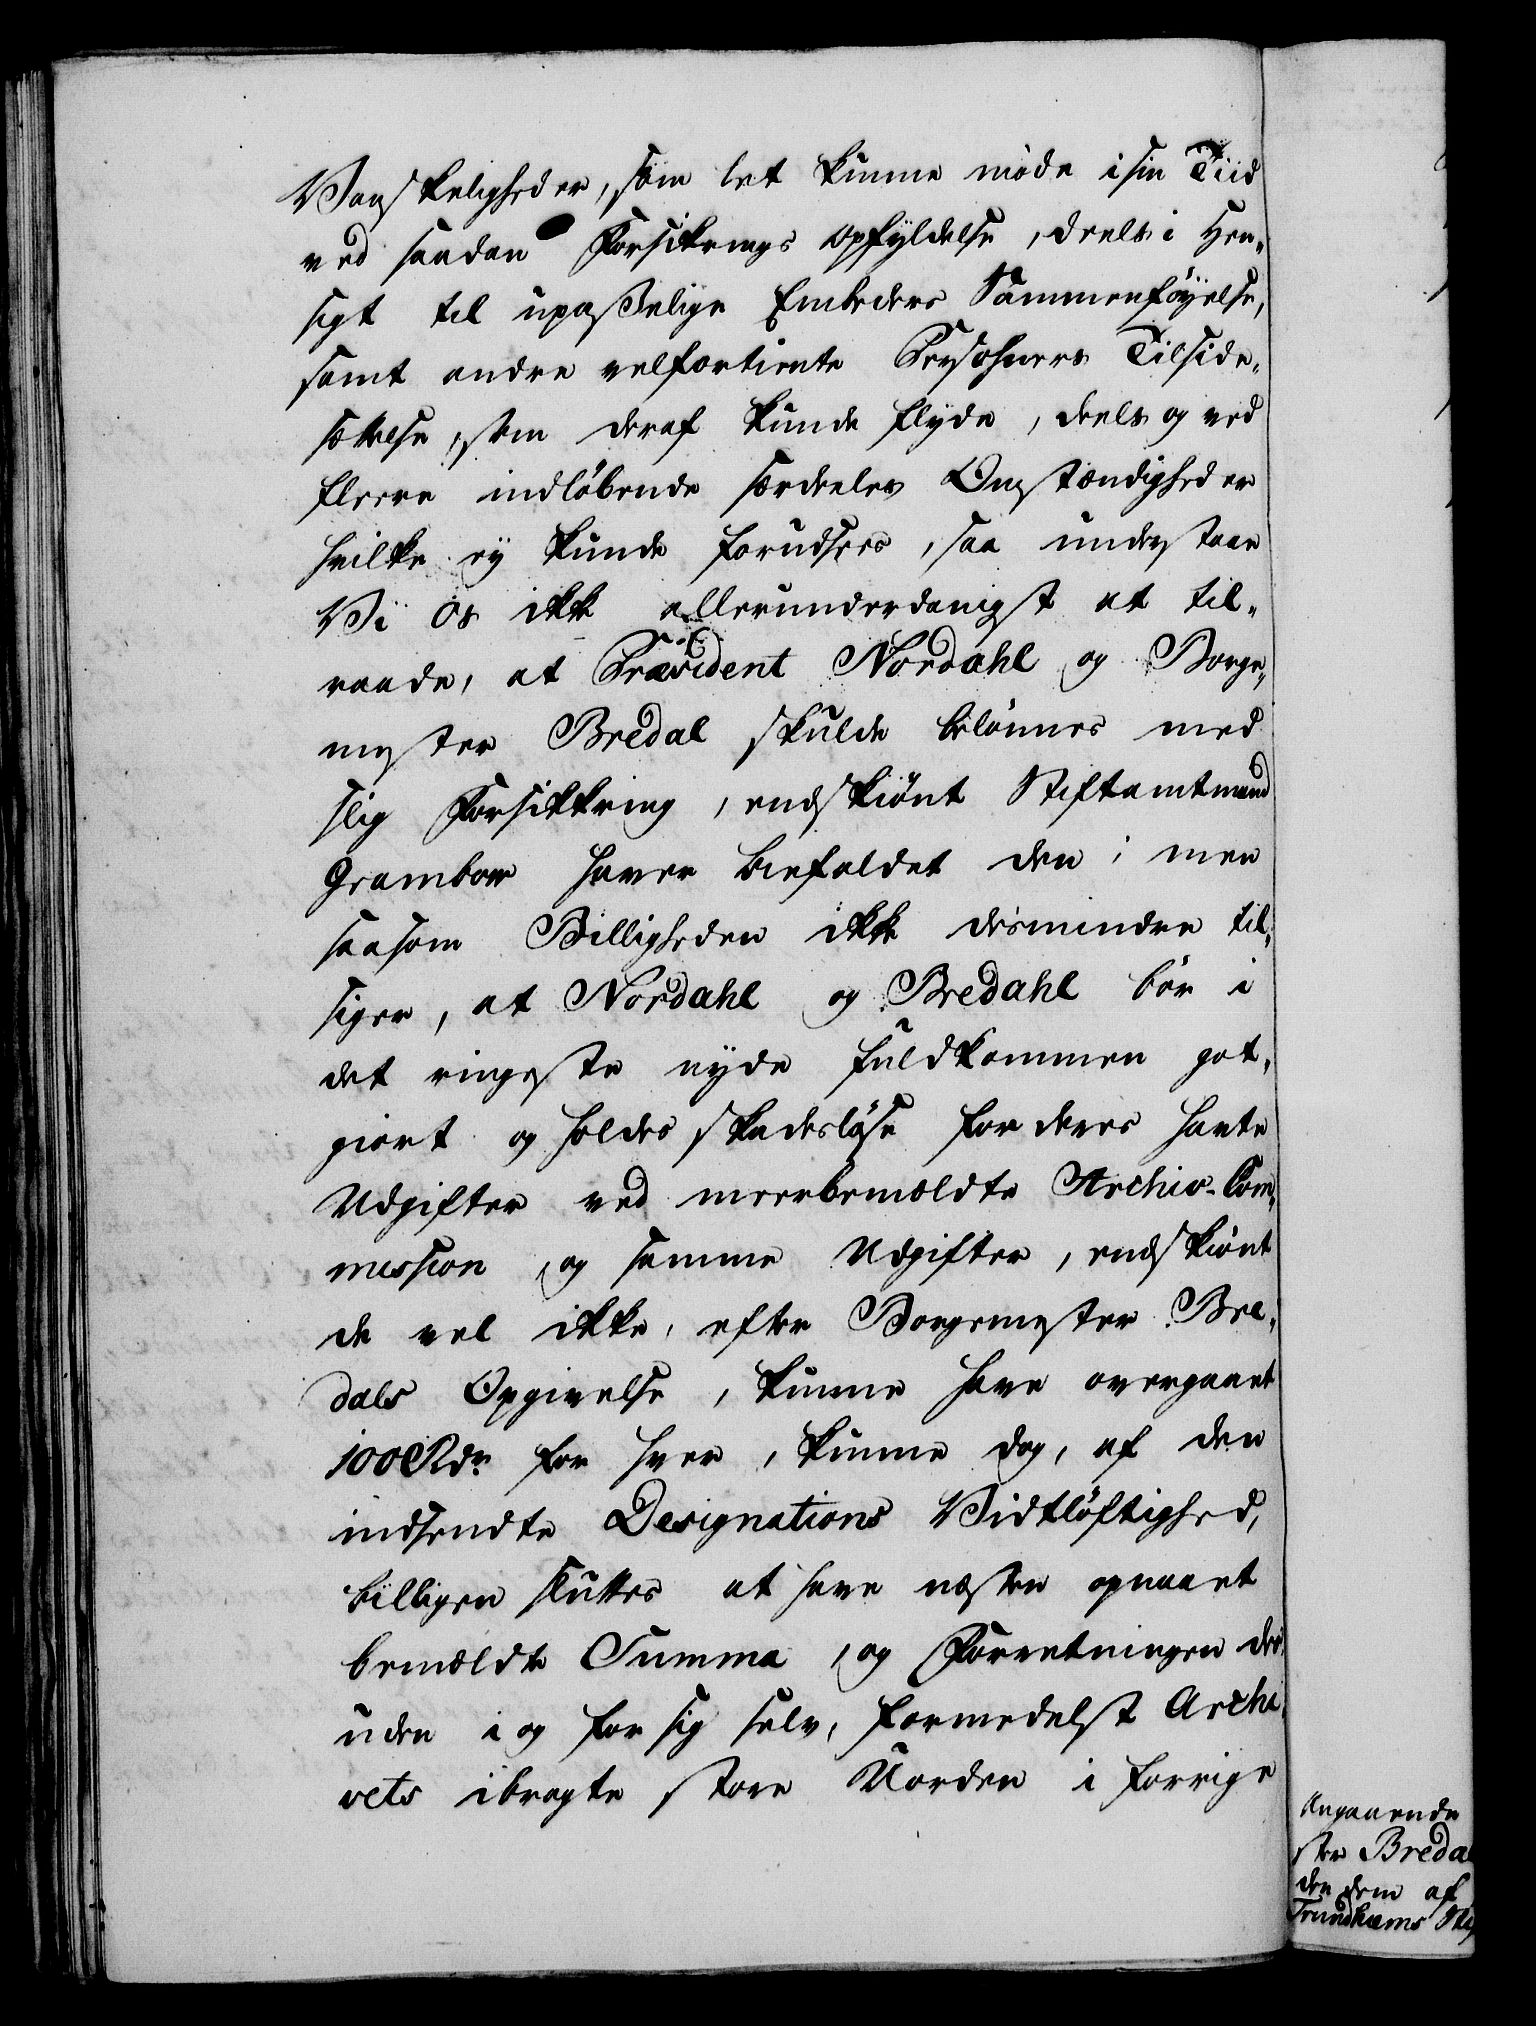 Vanskeligheder, som let kunne møde i sin Tiid
ved saadan Forsikrings Opfyldelse, deels i Hen-
sigt til upaßelige Embeders Sammenføyelse,
samt andre velfortiente Persohners Tilside-
sættelse, som deraf kunde flyde, deels og ved
fleere indløbende særdeeles Omstændigheder
hvilke ey kunde forudsees, saa understaae
Vi os ikke allerunderdanigst at til-
raade, at Præsident Nordahl og Borge-
mester Bredal skulde belønnes med
slig Forsikkring, endskiønt Stiftamtmand
Grambow haver biefaldet den; men
saasom Billigheden ikke desmindre til-
siger, at Nordahl og Bredahl bør i
det ringeste nyde fuldkommen got-
giort og holdes skadesløse for deres havte
Udgifter ved meerbemældte Archiv-Com-
mission, og samme Udgifter, endskiønt
de vel ikke, efter Borgemester Bre-
dals Opgivelse, kunne have overgaaet
100 Rdr for hver, kunne dog, af den
indsendte Designations Vidtløftighed,
billigen sluttes at have næsten opnaaet
bemældte Summa, og Forretningen des
uden i og for sig selv, formedelst Archi-
vets ibragte store Uorden i forrige
Angaaende
ster Breda
den dem af
Trundhiems Sti